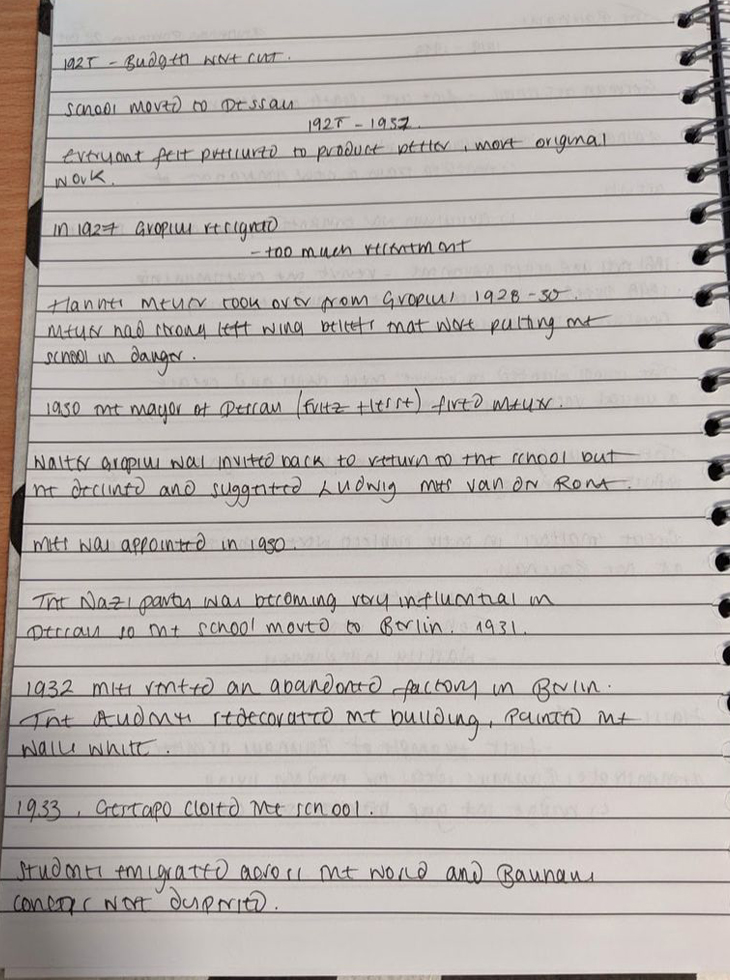 1925 - Budgets were cut.
School moved to Dessau
1925 - 1932.
everyone felt pressured to produce better, more original
work.
In 1927 Gropius resigned
- too much resentment
Hannes Meyer took over from Gropius 1928-30.
Meyer had strong left wing beliefs that were putting the
school in danger.
1930 the mayor of Dessau (Fritz Hesse) fired Meyer.
Walter Gropius was invited back to return to the school but
he declined and suggested Ludwig Mies van der Rohe.
Mies was appointed in 1930.
The Nazi party was becoming very influential in
Dessau so the school moved to Berlin. 1931.
1932 Mies rented an abandoned factory in Berlin.
The students redecorated the building, painted the
walls white.
1933, Gestapo closed the school.
Students emigrated across the world and Bauhaus
concepts were